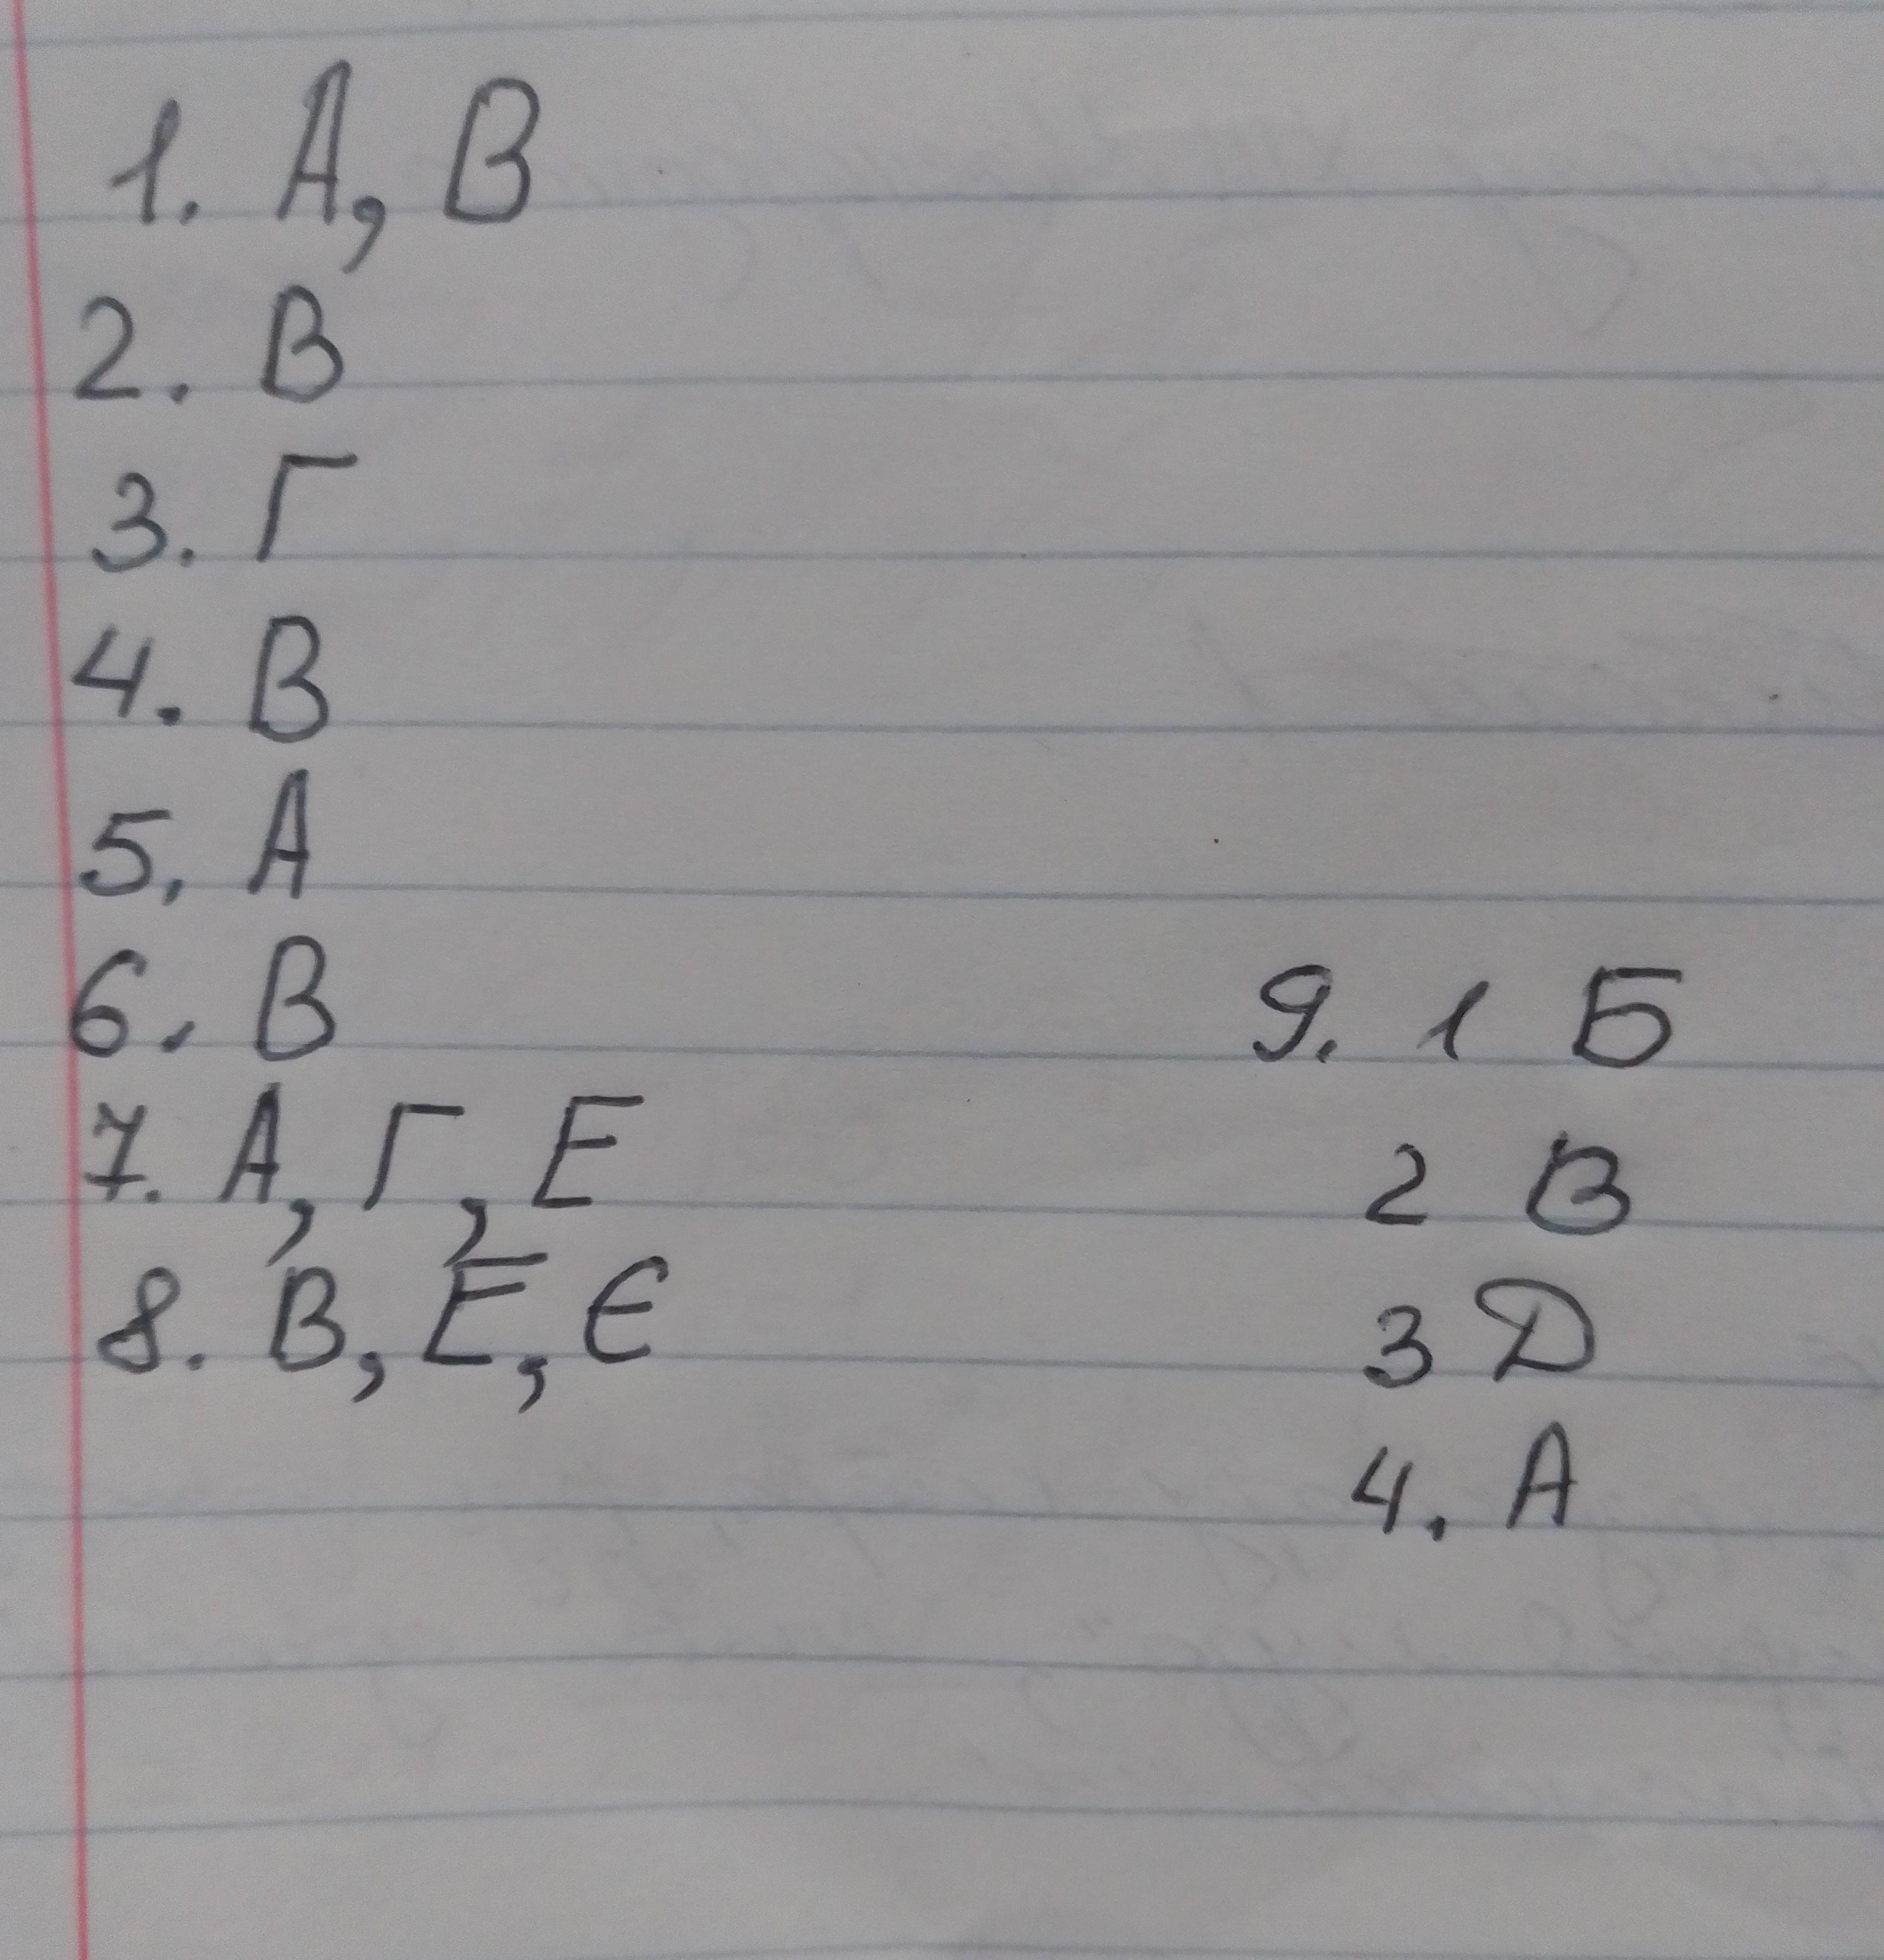 1. А, В
2. В
3. Г
4. В
5. А
6. В
7. А, Г, Е
8. В, Е, Є
9. 1 Б
2 В
3 Д
4. А